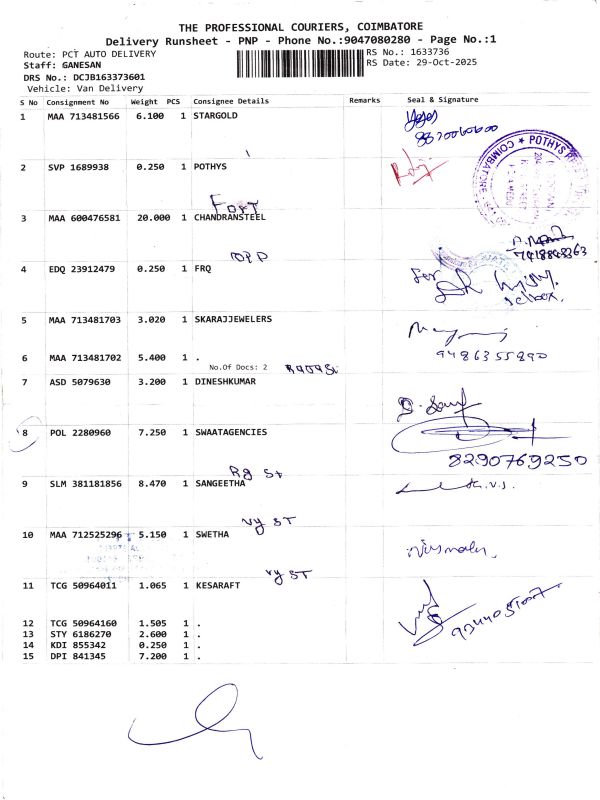 THE PROFESSIONAL COURIERS, COIMBATORE
Delivery Runsheet - PNP - Phone No.:9047080280 - Page No.:1
Route: PCT AUTO DELIVERY RS No.: 1633736
Staff: GANESAN RS Date: 29-Oct-2025
DRS No.: DCJB163373601
Vehicle: Van Delivery
S No Consignment No Weight PCS Consignee Details Remarks Seal & Signature
1 MAA 713481566 6.100 1 STARGOLD
2 SVP 1689938 0.250 1 POTHYS
POTHYS
COIMBATORE
Fort
3 MAA 600476581 20.000 1 CHANDRANSTEEL
OPP
4 EDQ 23912479 0.250 1 FRQ
For
5 MAA 713481703 3.020 1 SKARAJJEWELERS
9486355890
6 MAA 713481702 5.400 1 .
No.Of Docs: 2
7 ASD 5079630 3.200 1 DINESHKUMAR
8 POL 2280960 7.250 1 SWAATAGENCIES
8290769250
Rg St
9 SLM 381181856 8.470 1 SANGEETHA
vy ST
10 MAA 712525296 5.150 1 SWETHA
vy ST
11 TCG 50964011 1.065 1 KESARAFT
12 TCG 50964160 1.505 1 .
13 STY 6186270 2.600 1 .
14 KDI 855342 0.250 1 .
15 DPI 841345 7.200 1 .